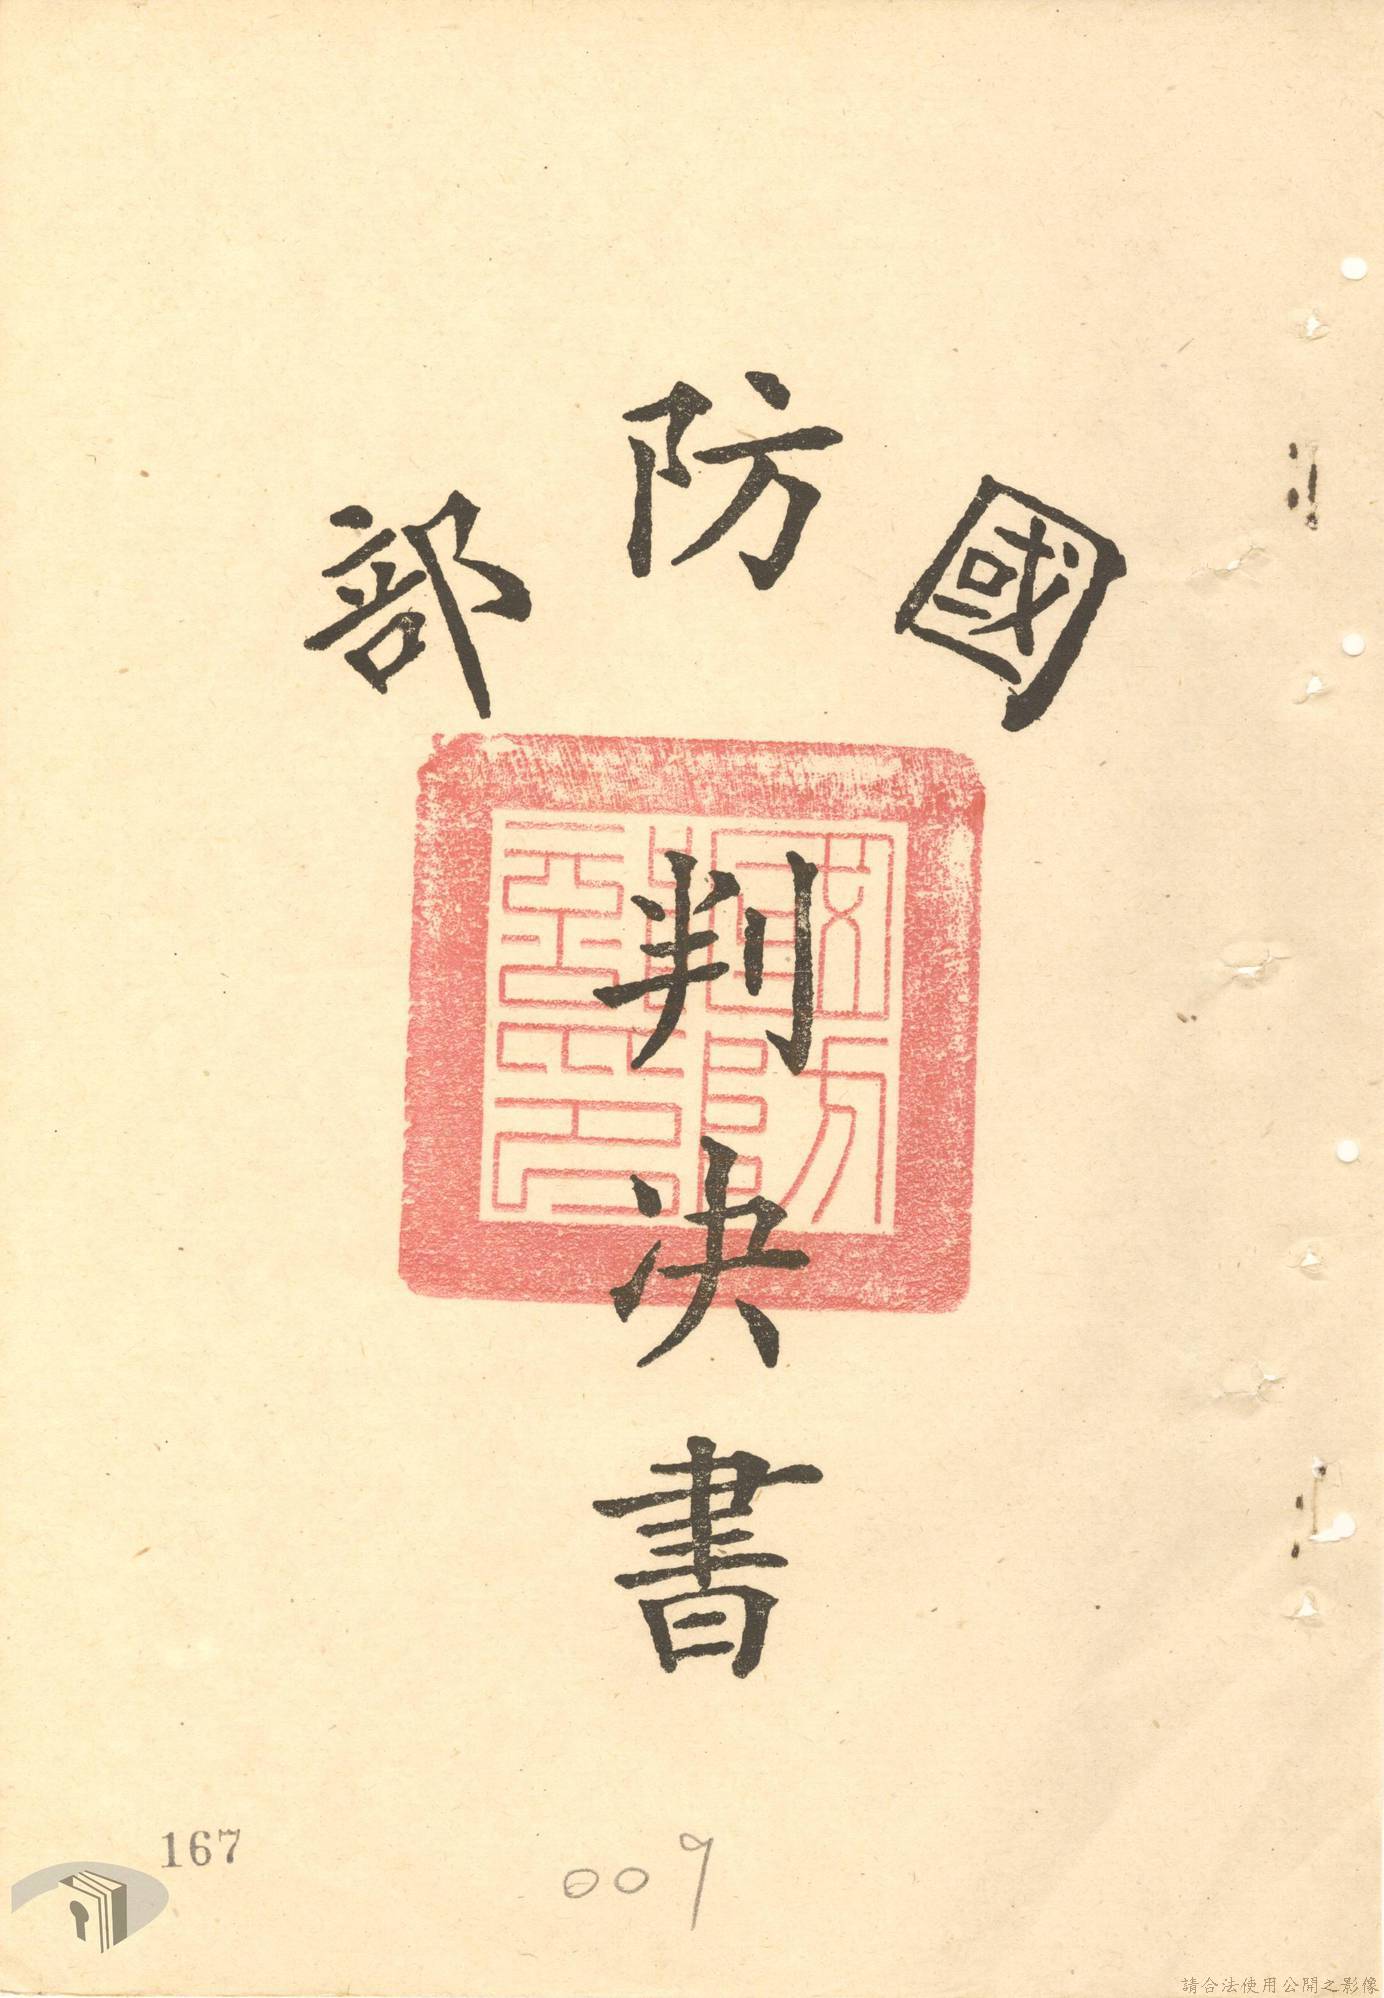 國防部
判決書
167
009
請合法使用公開之影像